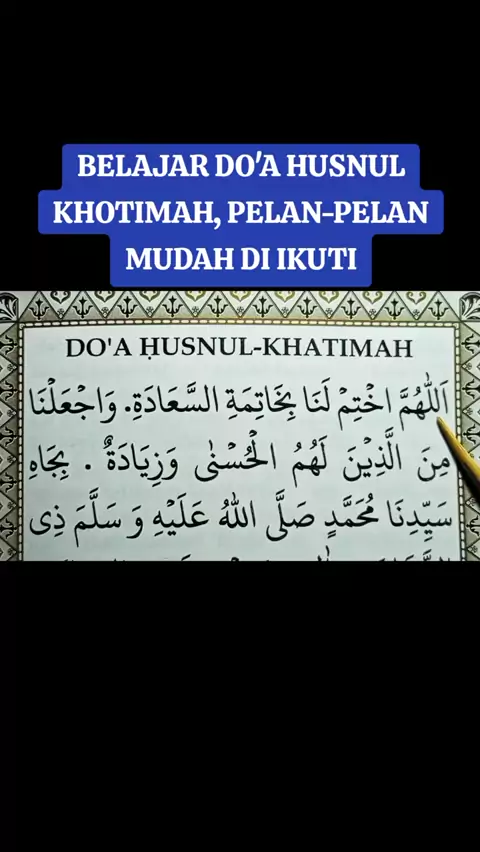 BELAJAR DO'A HUSNUL
KHOTIMAH, PELAN-PELAN
MUDAH DI IKUTI
DO'A ḤUSNUL-KHATIMAH
اَللّٰهُمَّ اخْتِمْ لَنَا بِخَاتِمَةِ السَّعَادَةِ. وَاجْعَلْنَا
مِنَ الَّذِيْنَ لَهُمُ الْحُسْنٰى وَزِيَادَةٌ . بِجَاهِ
سَيِّدِنَا مُحَمَّدٍ صَلَّى اللهُ عَلَيْهِ وَ سَلَّمَ ذِى